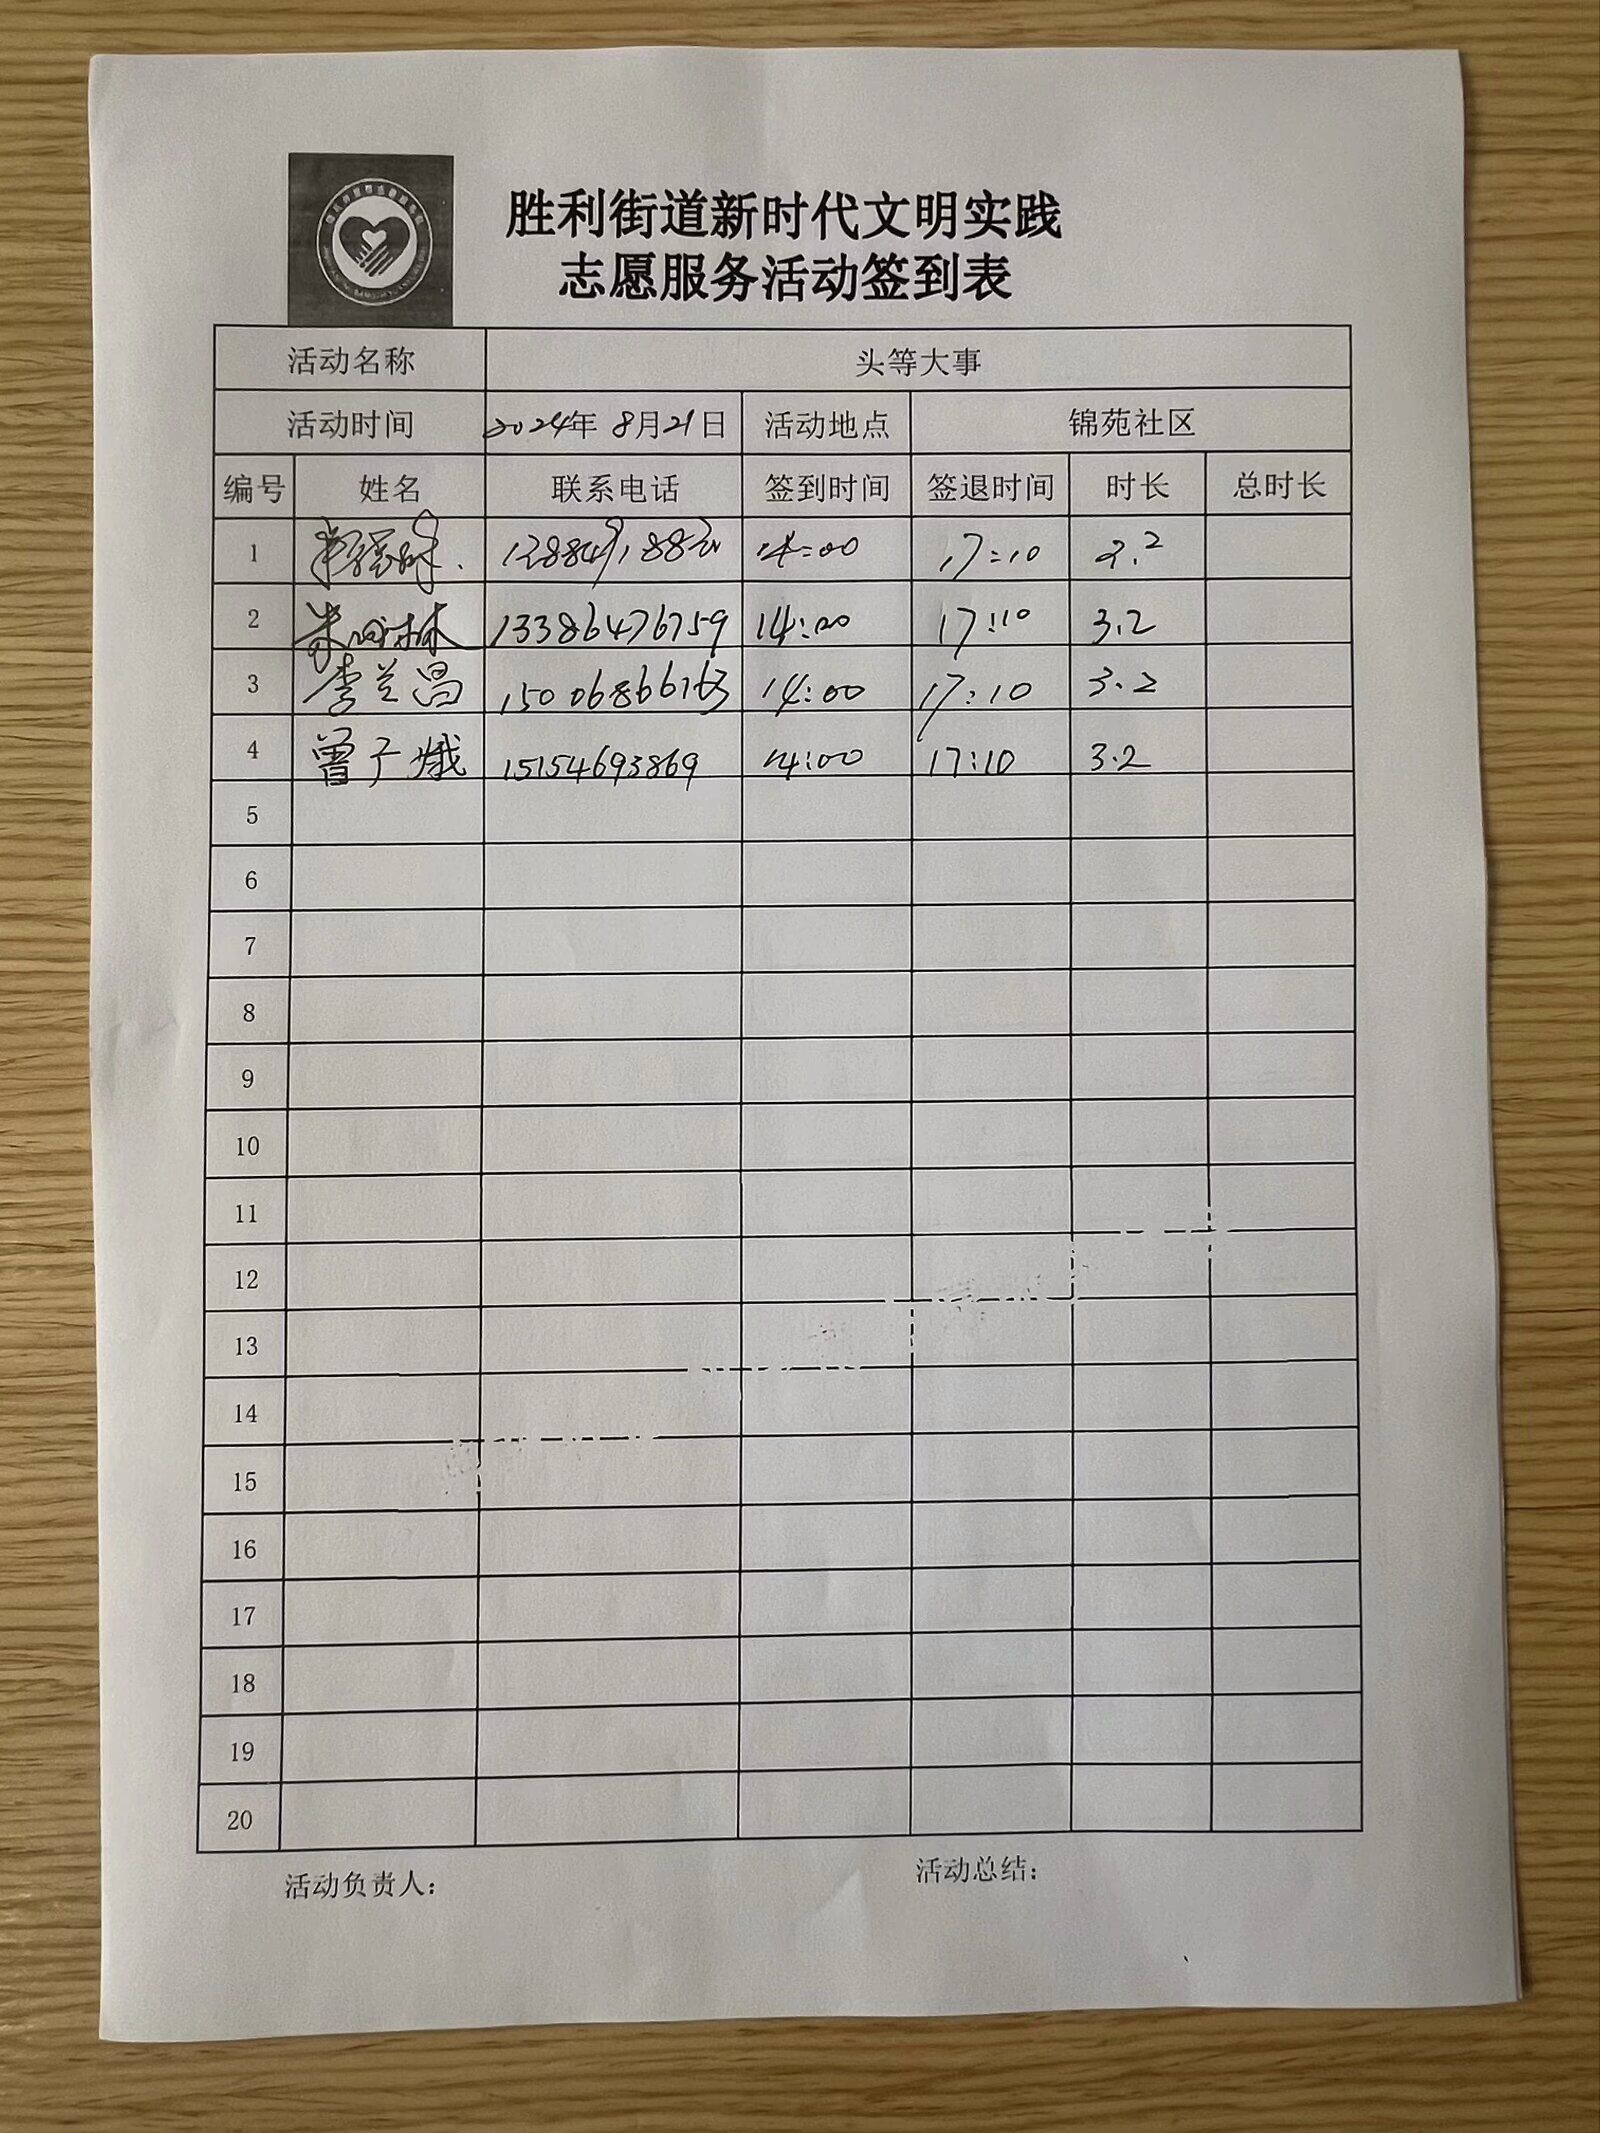 胜利街道新时代文明实践
志愿服务活动签到表
活动名称 头等大事
活动时间 2024年 8月21日 活动地点 锦苑社区
编号 姓名 联系电话 签到时间 签退时间 时长 总时长
1 14:00 17:10 3.2
2 13386476759 14:00 17:10 3.2
3 李兰昌 15006866763 14:00 17:10 3.2
4 曾广娥 15154693869 14:00 17:10 3.2
5
6
7
8
9
10
11
12
13
14
15
16
17
18
19
20
活动负责人： 活动总结：